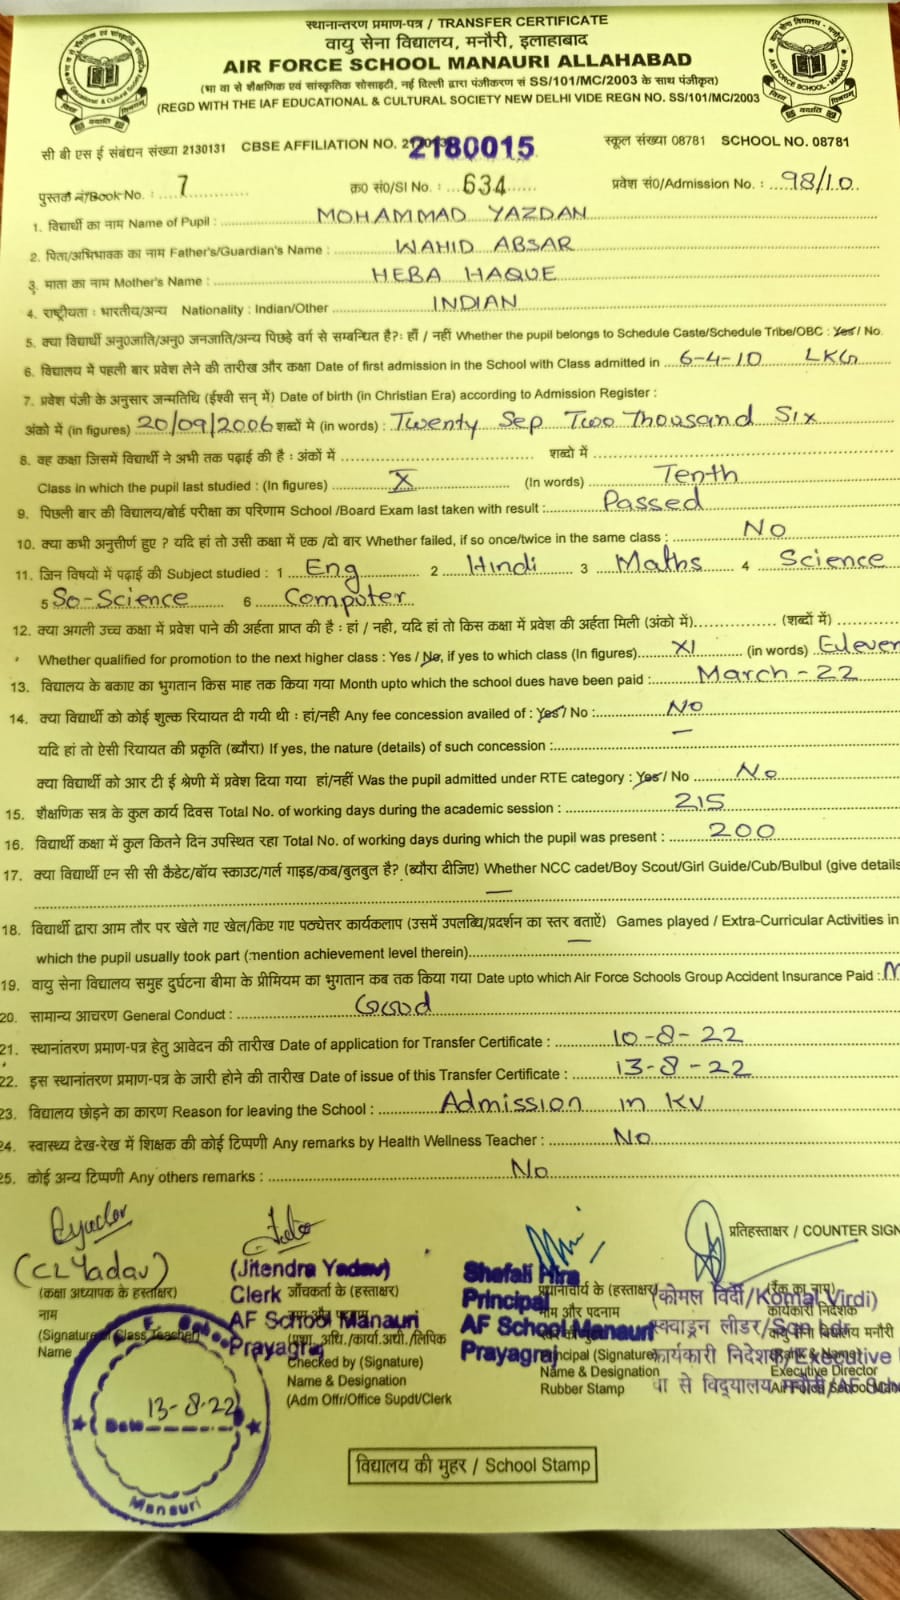 स्थानान्तरण प्रमाण-पत्र / TRANSFER CERTIFICATE
वायु सेना विद्यालय, मनौरी, इलाहाबाद
AIR FORCE SCHOOL MANAURI ALLAHABAD
(भा वा से शैक्षणिक एवं सांस्कृतिक सोसाइटी, नई दिल्ली द्वारा पंजीकरण सं SS/101/MC/2003 के साथ पंजीकृत)
(REGD WITH THE IAF EDUCATIONAL & CULTURAL SOCIETY NEW DELHI VIDE REGN NO. SS/101/MC/2003
सी बी एस ई संबंधन संख्या 2130131 CBSE AFFILIATION NO. 2180015 स्कूल संख्या 08781 SCHOOL NO. 08781
पुस्तक नं/Book No. : 7 क्र० सं०/Sl No. : 634 प्रवेश सं०/Admission No. : 98/10
1. विद्यार्थी का नाम Name of Pupil : MOHAMMAD YAZDAN
2. पिता/अभिभावक का नाम Father's/Guardian's Name : WAHID ABSAR
3. माता का नाम Mother's Name : HEBA HAQUE
4. राष्ट्रीयता : भारतीय/अन्य Nationality : Indian/Other INDIAN
5. क्या विद्यार्थी अनु०जाति/अनु० जनजाति/अन्य पिछड़े वर्ग से सम्बन्धित है?: हाँ / नहीं Whether the pupil belongs to Schedule Caste/Schedule Tribe/OBC : Yes / No.
6. विद्यालय में पहली बार प्रवेश लेने की तारीख और कक्षा Date of first admission in the School with Class admitted in 6-4-10 LKG
7. प्रवेश पंजी के अनुसार जन्मतिथि (ईश्वी सन् में) Date of birth (in Christian Era) according to Admission Register :
अंको में (in figures) 20/09/2006 शब्दों में (in words) : Twenty Sep Two Thousand Six
8. वह कक्षा जिसमें विद्यार्थी ने अभी तक पढ़ाई की है : अंकों में शब्दों में
Class in which the pupil last studied : (In figures) X (In words) Tenth
9. पिछली बार की विद्यालय/बोर्ड परीक्षा का परिणाम School /Board Exam last taken with result : Passed
10. क्या कभी अनुत्तीर्ण हुए ? यदि हां तो उसी कक्षा में एक /दो बार Whether failed, if so once/twice in the same class : NO
11. जिन विषयों में पढ़ाई की Subject studied : 1 Eng 2 Hindi 3 Maths 4 Science
5 So-Science 6 Computer
12. क्या अगली उच्च कक्षा में प्रवेश पाने की अर्हता प्राप्त की है : हां / नही, यदि हां तो किस कक्षा में प्रवेश की अर्हता मिली (अंको में) (शब्दों में)
Whether qualified for promotion to the next higher class : Yes / No, if yes to which class (In figures) XI (in words)
13. विद्यालय के बकाए का भुगतान किस माह तक किया गया Month upto which the school dues have been paid : March-22
14. क्या विद्यार्थी को कोई शुल्क रियायत दी गयी थी : हां/नही Any fee concession availed of : Yes / No : No
यदि हां तो ऐसी रियायत की प्रकृति (ब्यौरा) If yes, the nature (details) of such concession : —
क्या विद्यार्थी को आर टी ई श्रेणी में प्रवेश दिया गया हां/नहीं Was the pupil admitted under RTE category : Yes / No No
15. शैक्षणिक सत्र के कुल कार्य दिवस Total No. of working days during the academic session : 215
16. विद्यार्थी कक्षा में कुल कितने दिन उपस्थित रहा Total No. of working days during which the pupil was present : 200
17. क्या विद्यार्थी एन सी सी कैडेट/बॉय स्काउट/गर्ल गाइड/कब/बुलबुल है? (ब्यौरा दीजिए) Whether NCC cadet/Boy Scout/Girl Guide/Cub/Bulbul (give details
—
18. विद्यार्थी द्वारा आम तौर पर खेले गए खेल/किए गए पठ्येत्तर कार्यकलाप (उसमें उपलब्धि/प्रदर्शन का स्तर बताऐं) Games played / Extra-Curricular Activities in
which the pupil usually took part (mention achievement level therein) —
19. वायु सेना विद्यालय समुह दुर्घटना बीमा के प्रीमियम का भुगतान कब तक किया गया Date upto which Air Force Schools Group Accident Insurance Paid :
20. सामान्य आचरण General Conduct : Good
21. स्थानांतरण प्रमाण-पत्र हेतु आवेदन की तारीख Date of application for Transfer Certificate : 10-8-22
22. इस स्थानांतरण प्रमाण-पत्र के जारी होने की तारीख Date of issue of this Transfer Certificate : 13-8-22
23. विद्यालय छोड़ने का कारण Reason for leaving the School : Admission in KV
24. स्वास्थ्य देख-रेख में शिक्षक की कोई टिप्पणी Any remarks by Health Wellness Teacher : No
25. कोई अन्य टिप्पणी Any others remarks : No
प्रतिहस्ताक्षर / COUNTER SIGN
(CL Yadav) (Jitendra Yadav) Shefali Mira (कोमल विर्दी/Komal Virdi)
(कक्षा अध्यापक के हस्ताक्षर) Clerk जाँचकर्ता के (हस्ताक्षर) Principal प्रधानाचार्य के (हस्ताक्षर)
नाम AF School Manauri AF School Manauri नाम और पदनाम कार्यकारी निदेशक
(Signature Class Teacher) Prayagraj Prayagraj Principal (Signature) स्क्वाड्रन लीडर/Sqn Ldr
Name Checked by (Signature) Name & Designation कार्यकारी निदेशक/Executive
Name & Designation Rubber Stamp Executive Director
(Adm Offr/Office Supdt/Clerk
13-8-22
Date
Manauri
विद्यालय की मुहर / School Stamp